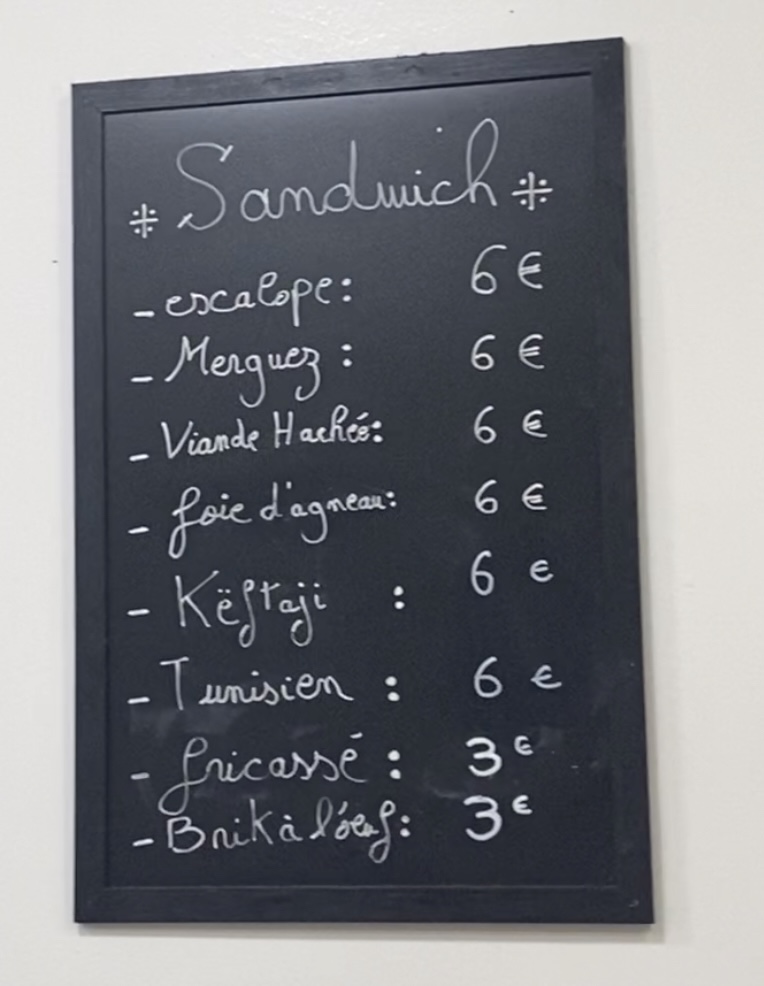 Sandwich
- escalope: 6 €
- Merguez : 6 €
- Viande Hachée: 6 €
- foie d'agneau: 6 €
- Këftaji : 6 €
- Tunisien : 6 €
- fricassé : 3 €
- Brik à l'œuf: 3 €